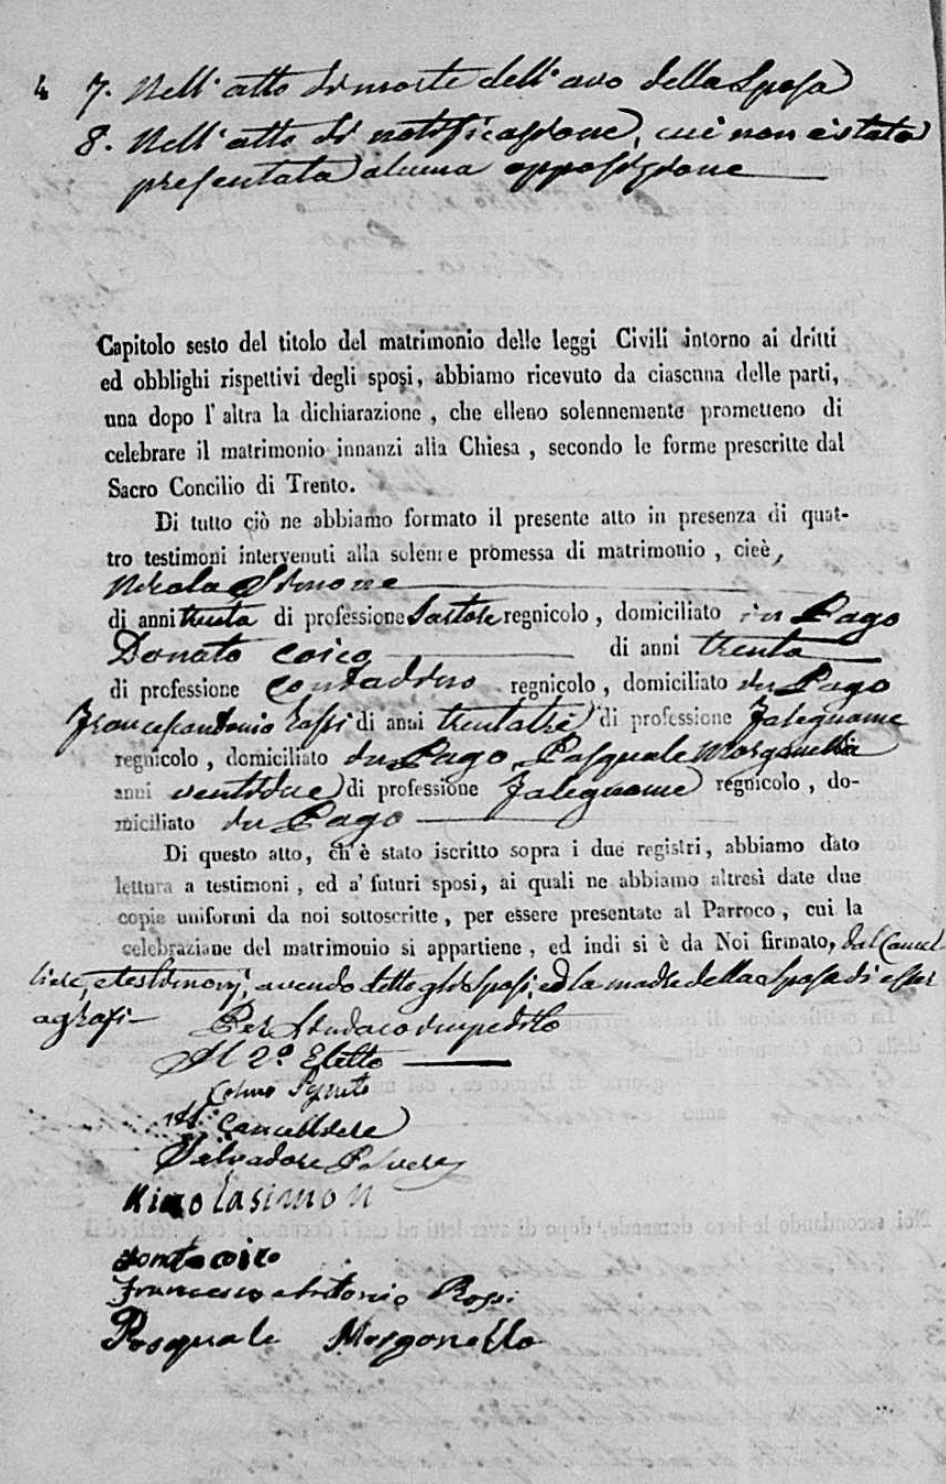 4 7. Nell' atto di morte dell' avo della Sposa
8. Nell' atto di notificazione, cui non è stata
presentata alcuna opposizione
Capitolo sesto del titolo del matrimonio delle leggi Civili intorno ai dritti
ed obblighi rispettivi degli sposi, abbiamo ricevuto da ciascuna delle parti,
una dopo l' altra la dichiarazione, che elleno solennemente prometteno di
celebrare il matrimonio innanzi alla Chiesa, secondo le forme prescritte dal
Sacro Concilio di Trento.
Di tutto ciò ne abbiamo formato il presente atto in presenza di quat-
tro testimoni intervenuti alla solenne promessa di matrimonio, cioè,
Nicola Simone
di anni trenta di professione Sartore regnicolo, domiciliato in Pago
Donato Coico di anni trenta
di professione Contadino regnicolo, domiciliato in Pago
Francescantonio Rossi di anni trentatre di professione Falegname
regnicolo, domiciliato in Pago, Pasquale Morganella
anni ventidue di professione Falegname regnicolo, do-
miciliato in Pago
Di questo atto, ch'è stato iscritto sopra i due registri, abbiamo dato
lettura a testimoni, ed a' futuri sposi, ai quali ne abbiamo altresì date due
copie uniformi da noi sottoscritte, per essere presentate al Parroco, cui la
celebrazione del matrimonio si appartiene, ed indi si è da Noi firmato, dal Cancel-
liere, e testimonj, avendo detto gli Sposi, ed la madre della Sposa di esser
agrafi
Pel Sindaco impedito
Il 2º Eletto
Il Cancelliere
Salvadore Polvere
Donato coico
Francesco Antonio Rossi
Pasquale Morganella